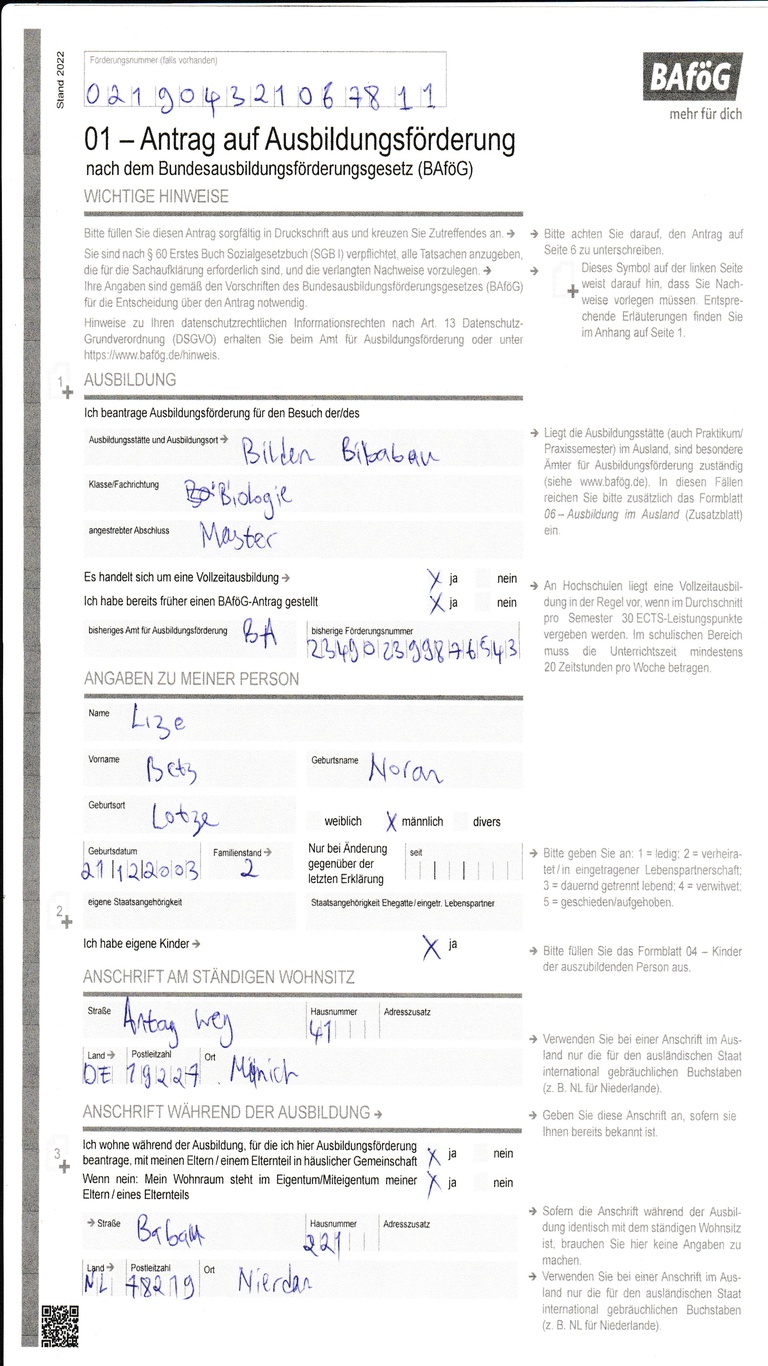 Stand 2022
Förderungsnummer (falls vorhanden)
021904321067811
BAföG
mehr für dich
01 – Antrag auf Ausbildungsförderung
nach dem Bundesausbildungsförderungsgesetz (BAföG)
WICHTIGE HINWEISE
Bitte füllen Sie diesen Antrag sorgfältig in Druckschrift aus und kreuzen Sie Zutreffendes an. →
Sie sind nach § 60 Erstes Buch Sozialgesetzbuch (SGB I) verpflichtet, alle Tatsachen anzugeben,
die für die Sachaufklärung erforderlich sind, und die verlangten Nachweise vorzulegen. →
Ihre Angaben sind gemäß den Vorschriften des Bundesausbildungsförderungsgesetzes (BAföG)
für die Entscheidung über den Antrag notwendig.
Hinweise zu Ihren datenschutzrechtlichen Informationsrechten nach Art. 13 Datenschutz-
Grundverordnung (DSGVO) erhalten Sie beim Amt für Ausbildungsförderung oder unter
https://www.bafög.de/hinweis.
→ Bitte achten Sie darauf, den Antrag auf
Seite 6 zu unterschreiben.
→ Dieses Symbol auf der linken Seite
weist darauf hin, dass Sie Nach-
weise vorlegen müssen. Entspre-
chende Erläuterungen finden Sie
im Anhang auf Seite 1.
1 AUSBILDUNG
Ich beantrage Ausbildungsförderung für den Besuch der/des
Ausbildungsstätte und Ausbildungsort → Bilden Bibabau
Klasse/Fachrichtung Biologie
angestrebter Abschluss Master
→ Liegt die Ausbildungsstätte (auch Praktikum/
Praxissemester) im Ausland, sind besondere
Ämter für Ausbildungsförderung zuständig
(siehe www.bafög.de). In diesen Fällen
reichen Sie bitte zusätzlich das Formblatt
06 – Ausbildung im Ausland (Zusatzblatt)
ein.
Es handelt sich um eine Vollzeitausbildung → X ja nein
Ich habe bereits früher einen BAföG-Antrag gestellt X ja nein
bisheriges Amt für Ausbildungsförderung BA bisherige Förderungsnummer 234902399876543
→ An Hochschulen liegt eine Vollzeitausbil-
dung in der Regel vor, wenn im Durchschnitt
pro Semester 30 ECTS-Leistungspunkte
vergeben werden. Im schulischen Bereich
muss die Unterrichtszeit mindestens
20 Zeitstunden pro Woche betragen.
ANGABEN ZU MEINER PERSON
Name Lize
Vorname Betz Geburtsname Noran
Geburtsort Lotze weiblich X männlich divers
Geburtsdatum 21122003 Familienstand → 2
Nur bei Änderung
gegenüber der
letzten Erklärung
seit
→ Bitte geben Sie an: 1 = ledig; 2 = verheira-
tet / in eingetragener Lebenspartnerschaft;
3 = dauernd getrennt lebend; 4 = verwitwet;
5 = geschieden/aufgehoben.
2 eigene Staatsangehörigkeit Staatsangehörigkeit Ehegatte/eingetr. Lebenspartner
Ich habe eigene Kinder → X ja
→ Bitte füllen Sie das Formblatt 04 – Kinder
der auszubildenden Person aus.
ANSCHRIFT AM STÄNDIGEN WOHNSITZ
Straße Antag weg Hausnummer 41 Adresszusatz
Land → DE Postleitzahl 19227 Ort Münich
→ Verwenden Sie bei einer Anschrift im Aus-
land nur die für den ausländischen Staat
international gebräuchlichen Buchstaben
(z. B. NL für Niederlande).
ANSCHRIFT WÄHREND DER AUSBILDUNG →
→ Geben Sie diese Anschrift an, sofern sie
Ihnen bereits bekannt ist.
3 Ich wohne während der Ausbildung, für die ich hier Ausbildungsförderung
beantrage, mit meinen Eltern / einem Elternteil in häuslicher Gemeinschaft X ja nein
Wenn nein: Mein Wohnraum steht im Eigentum/Miteigentum meiner
Eltern / eines Elternteils X ja nein
→ Straße Babau Hausnummer 221 Adresszusatz
Land → NL Postleitzahl 78219 Ort Nierdan
→ Sofern die Anschrift während der Ausbil-
dung identisch mit dem ständigen Wohnsitz
ist, brauchen Sie hier keine Angaben zu
machen.
→ Verwenden Sie bei einer Anschrift im Aus-
land nur die für den ausländischen Staat
international gebräuchlichen Buchstaben
(z. B. NL für Niederlande).